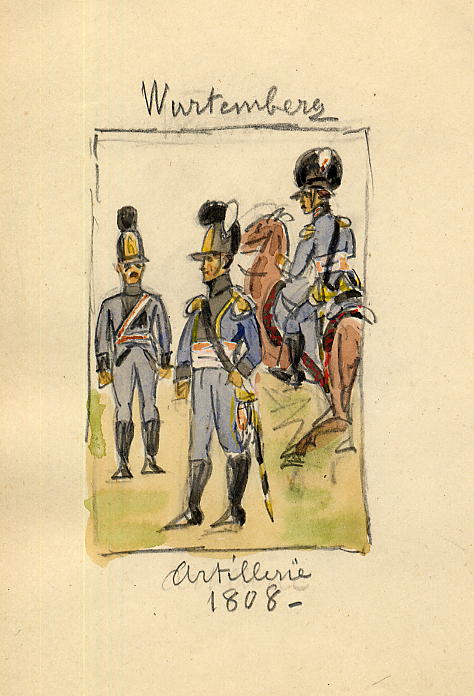 Wurtemberg
Artillerie
1808-